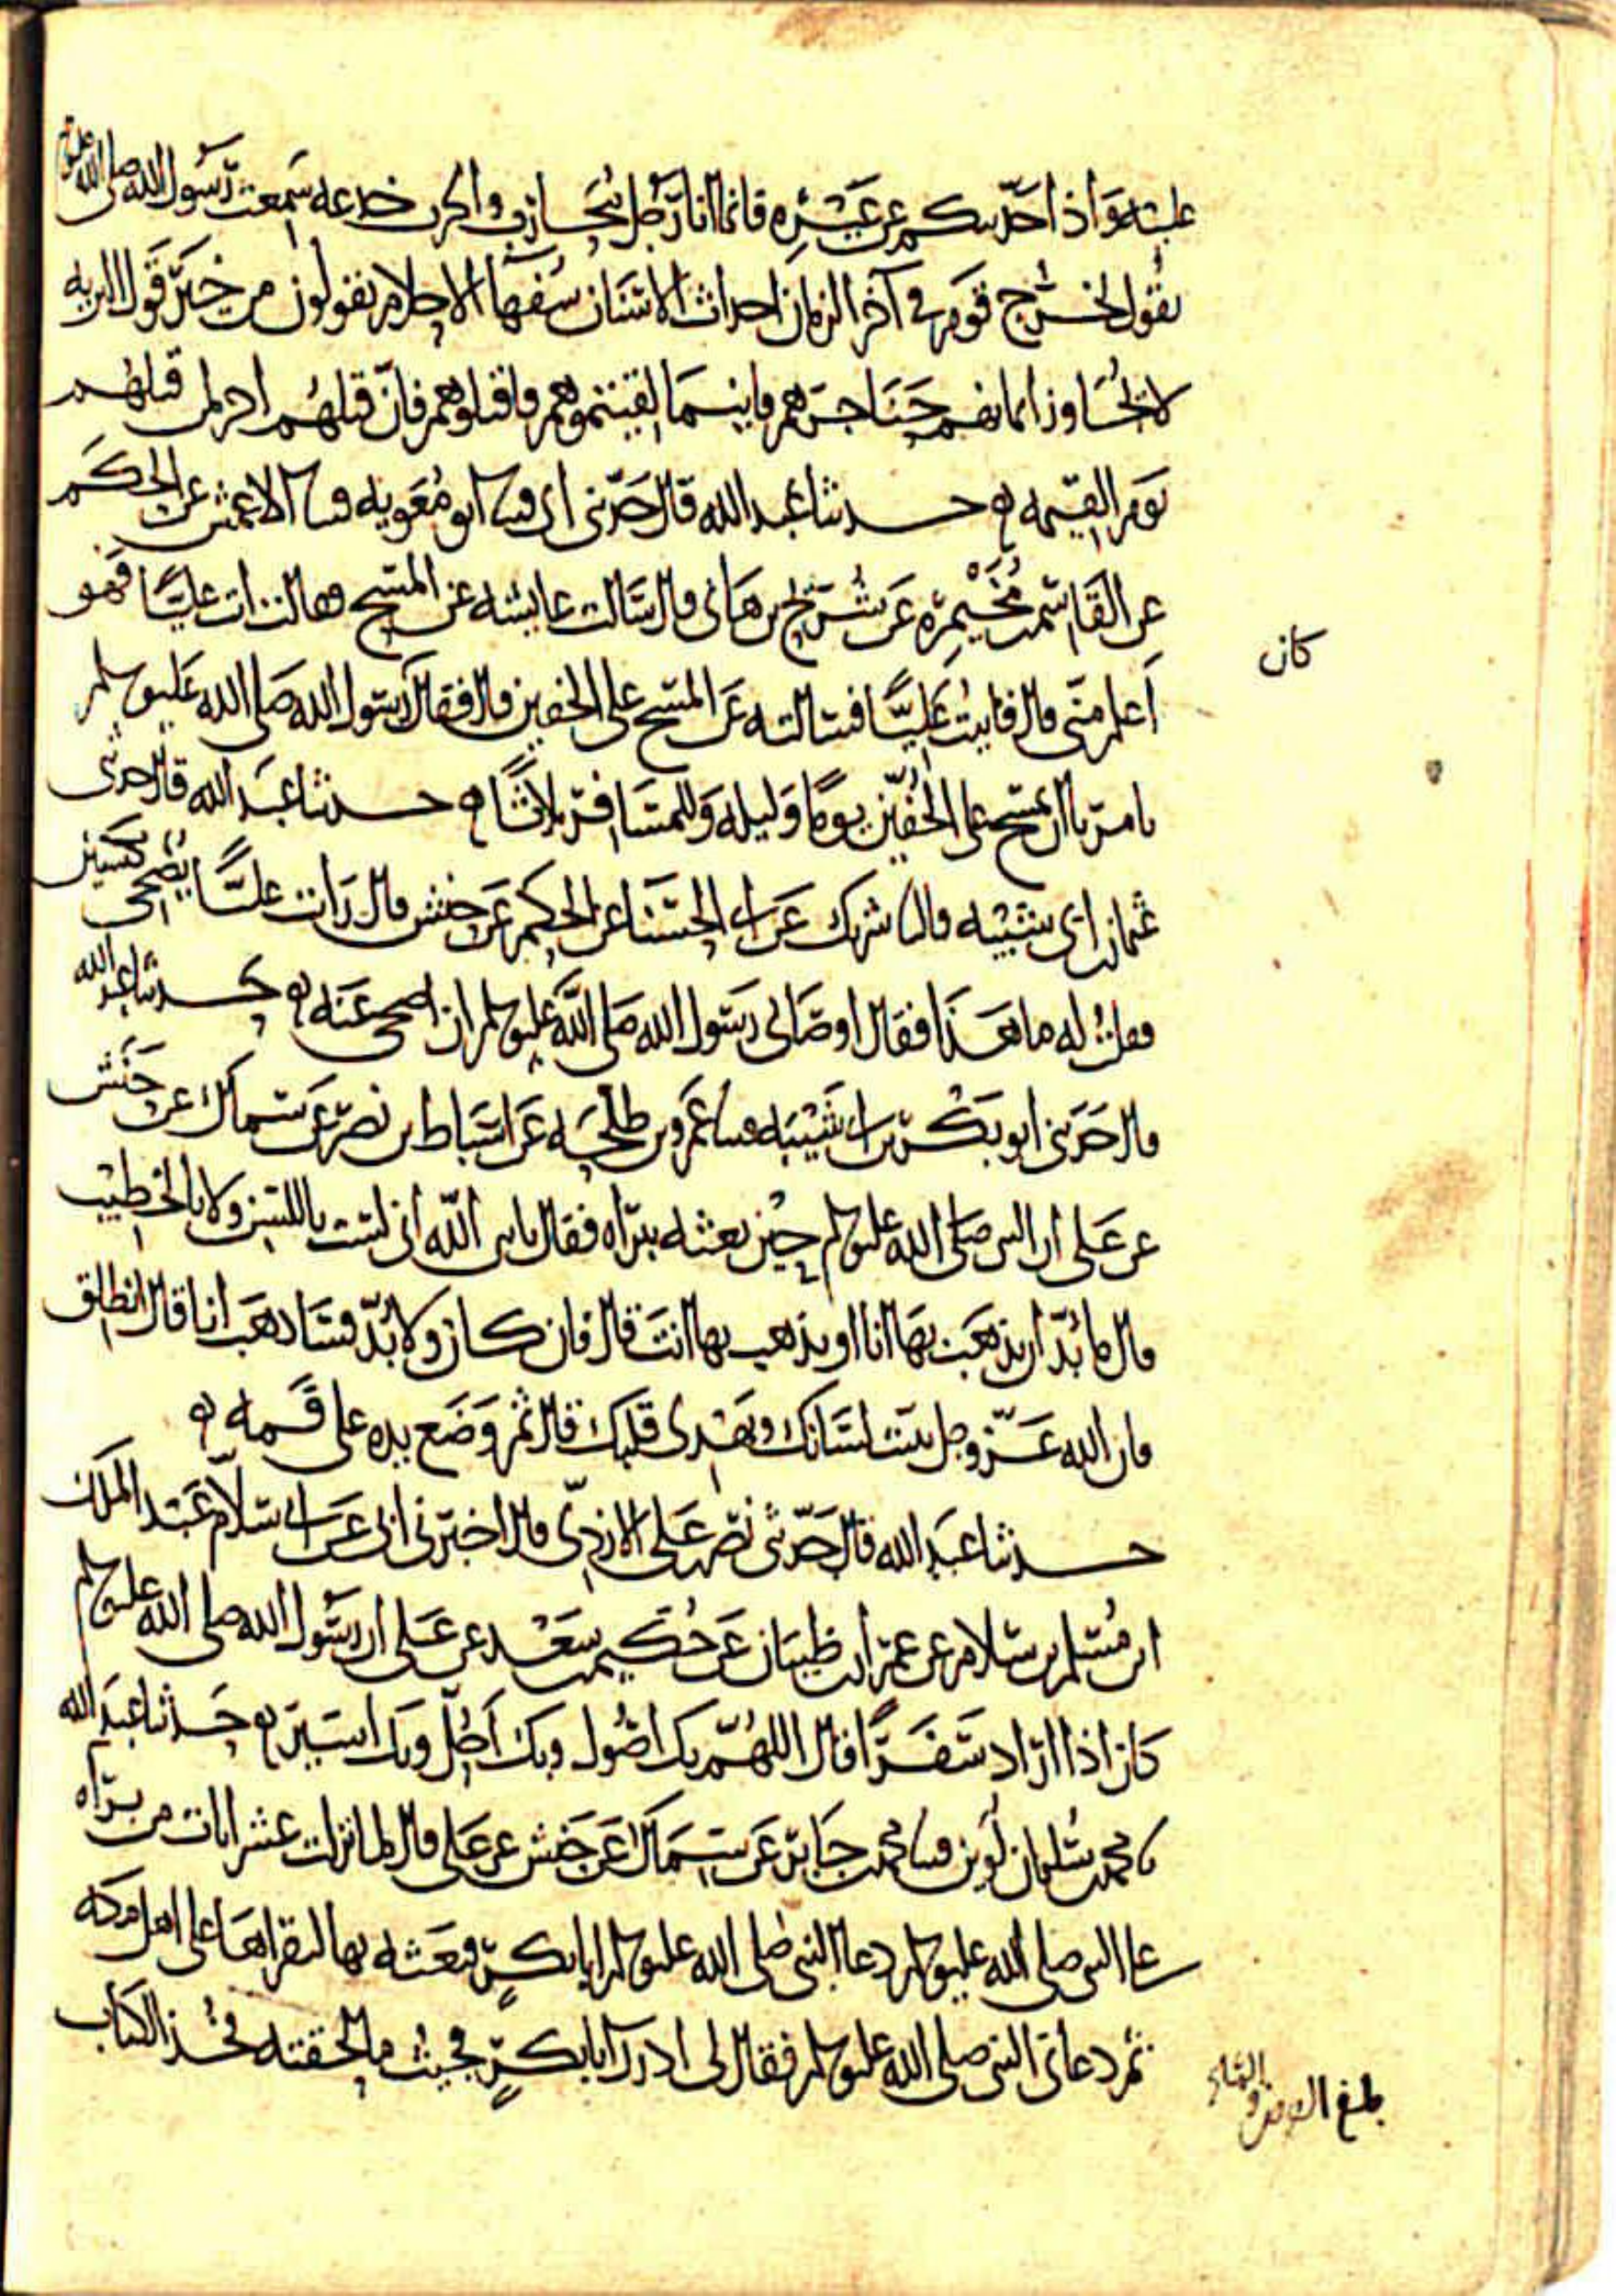 عليه وَاذا احدّثكم عن غَيْره فانما انا رَجل مُحَارب والحرب خدعه سَمعت رَسُول الله صلى الله عليه
يقُول يخرُج قوَم في آخر الزمان احداث الاسنان سُفهَا الاحلام يقولون من خيَر قَول البريه
لا يُجَاوز ايمانهم حَنَاجرَهم فاينمَا لقيتموهم فاقتلوهم فانّ قتلهُم اجر لمن قتلهُم
يَوم القيمه ه حدثنا عَبد الله قال حَدّثني ابي ثنا ابو مُعَويه ثنا الاعمش عن الحكَم
عن القَاسم بن مُخَيْمِرَه عَن شُرَيح بن هَانى قال سَالت عايشه عَن المسَح فقالت ات عليًّا فهو
اَعلم منّى قال فاتيتُ عَليًّا فسَالته عَن المسَح على الخفين قال فقال كان رَسُول الله صَلى الله عَليه وسلم
يامرنا ان نمسَح على الخُفّين يومًا وَليله وَللمسَافر ثلاثًا ه حدثنا عَبَد الله قال حدثني
عُثمان بن ابي شَيْبَه قال ثنا شريك عَن ابي الحَسْنَا عن الحكم عَن حنش قال رَايت عليًّا يُضحى بكبشين
فقلتُ له ما هَذا فقال اوصَانى رَسَول الله صَلى الله عَليه وسلم ان اضحى عَنه ه حدثنا عبد الله
قال حَدثنى ابو بَكْر بن ابى شَيْبَه ثنا عَمرو بن طلحَه عَن اسْبَاط بن نصر عَن سَماك عن حَنش
عن عَلى ان النبى صَلى الله عليه وسلم حيْن بعثه ببَرَاه فقال يا نبى الله انى لسَت باللسِن ولا بالخطيْب
قال ما بُدّ ان نذهَب بهَا انا او تذهب بها انتَ قال فان كان ولا بُدّ فسَاذهَب انا قال انطلق
فان الله عَزّ وجل يثبت لسَانك ويهَدى قلبك قال ثم وَضَع يده على فَمه ه
حدثنا عَبَد الله قال حَدّثنى نصر بن عَلى الازدِى قال اخبَرنى ابى عَن ابى سَلاّم عَبَد الملك
ابن مُسَلم بن سَلام عن عمرَان بن ظبيَان عَن حُكَيم بن سَعْد عن عَلى ان رَسُول الله صلى الله عليه وسلم
كان اذا ارَاد سَفَرًا قال اللهُمّ بك اصُول وبك اَحُلّ وبك اسَير ه حَدثنا عَبَد الله
ثنا محمد بن سُليمان لُوين ثنا محمد بن جَابر عَن سمَاك عَن حَنش عن عَلى قال لما نزلت عشر ايات من برَاه
على النبى صلى الله عليه وسلم دعا النبى صَلى الله عليه وسلم ابا بكر فبَعَثه بها ليقراهَا على اهل مكه
ثم دعانى النبى صلى الله عليه وسلم فقال لى ادرك ابا بكرٍ فحيثُ ما لحقته فخُذ الكتاب
كان